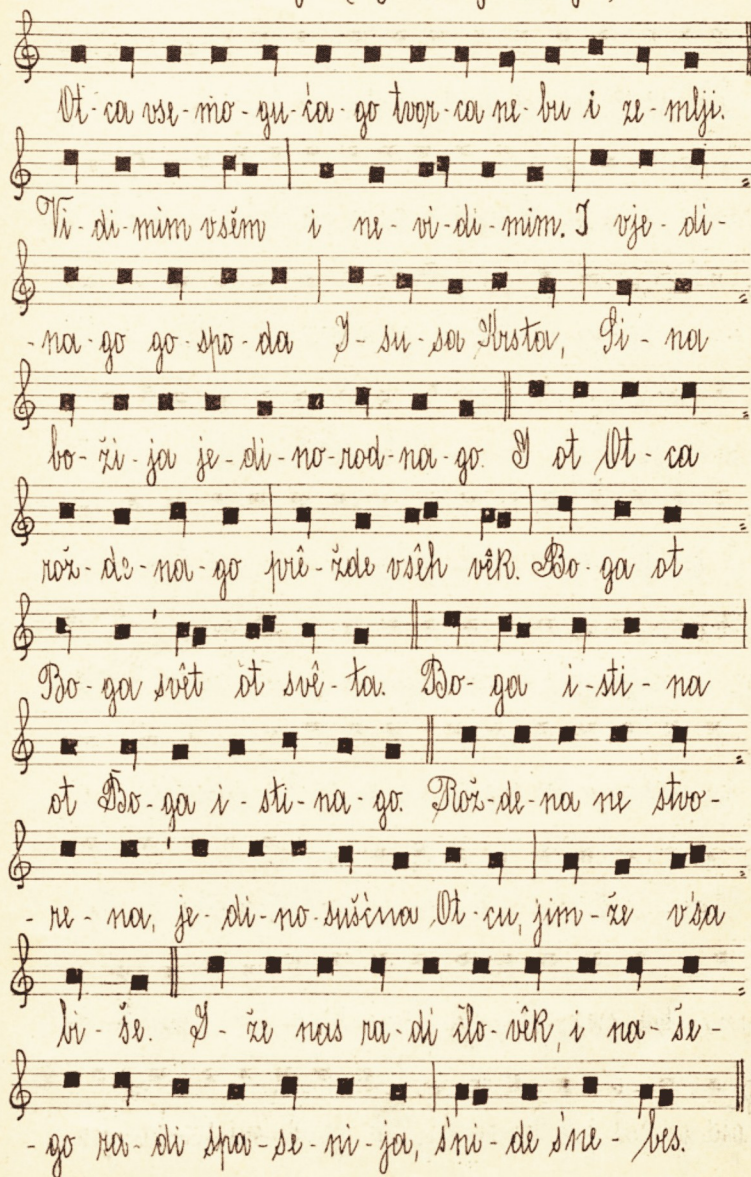 Ot-ca vse-mo-gu-ća-go tvor-ca ne-bu i ze-mlji.
Vi-di-mim vsêm i ne-vi-di-mim. I vje-di-
-na-go go-spo-da I-su-sa Krsta, Si-na
bo-ži-ja je-di-no-rod-na-go. I ot Ot-ca
rož-de-na-go prê-žde vsêh vêk. Bo-ga ot
Bo-ga svêt ot svê-ta. Bo-ga i-sti-na
ot Bo-ga i-sti-na-go. Rož-de-na ne stvo-
-re-na, je-di-no-sušćna Ot-cu, jim-že v'sa
bi-še. I-že nas ra-di člo-vêk, i na-še-
-go ra-di spa-se-ni-ja, s'ni-de s'ne-bes.